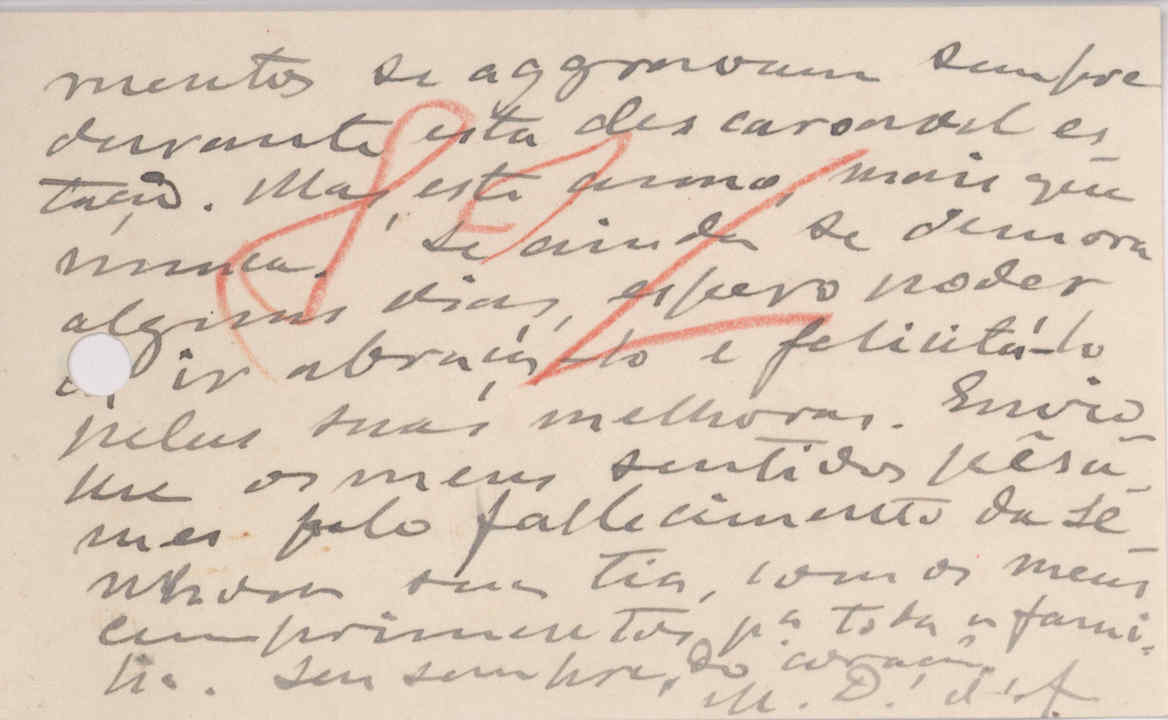 mentos se aggravam sempre
durante esta descaroavel es
tação. Mas, este anno, mais que
nunca. Se ainda se demora
alguns dias, espero poder
ir abraçá-lo e felicitá-lo
pelas suas melhoras. Envio
lhe os meus sentidos pêsa-
mes pelo fallecimento da se-
nhora sua tia, com os meus
cumprimentos pª toda a fami-
lia. Seu sempre, do coração,
M. D. d'A